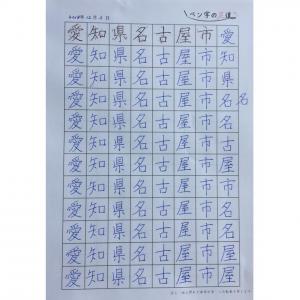 \ペン字の
愛知県名古屋市愛
愛知県名古屋市知
愛知県名古屋市県
愛知県名古屋市名名
愛知県名古屋市古
愛知県名古屋市屋
愛知県名古屋市市
愛知県名古屋市名
愛知県名古屋市古
愛知県名古屋市屋